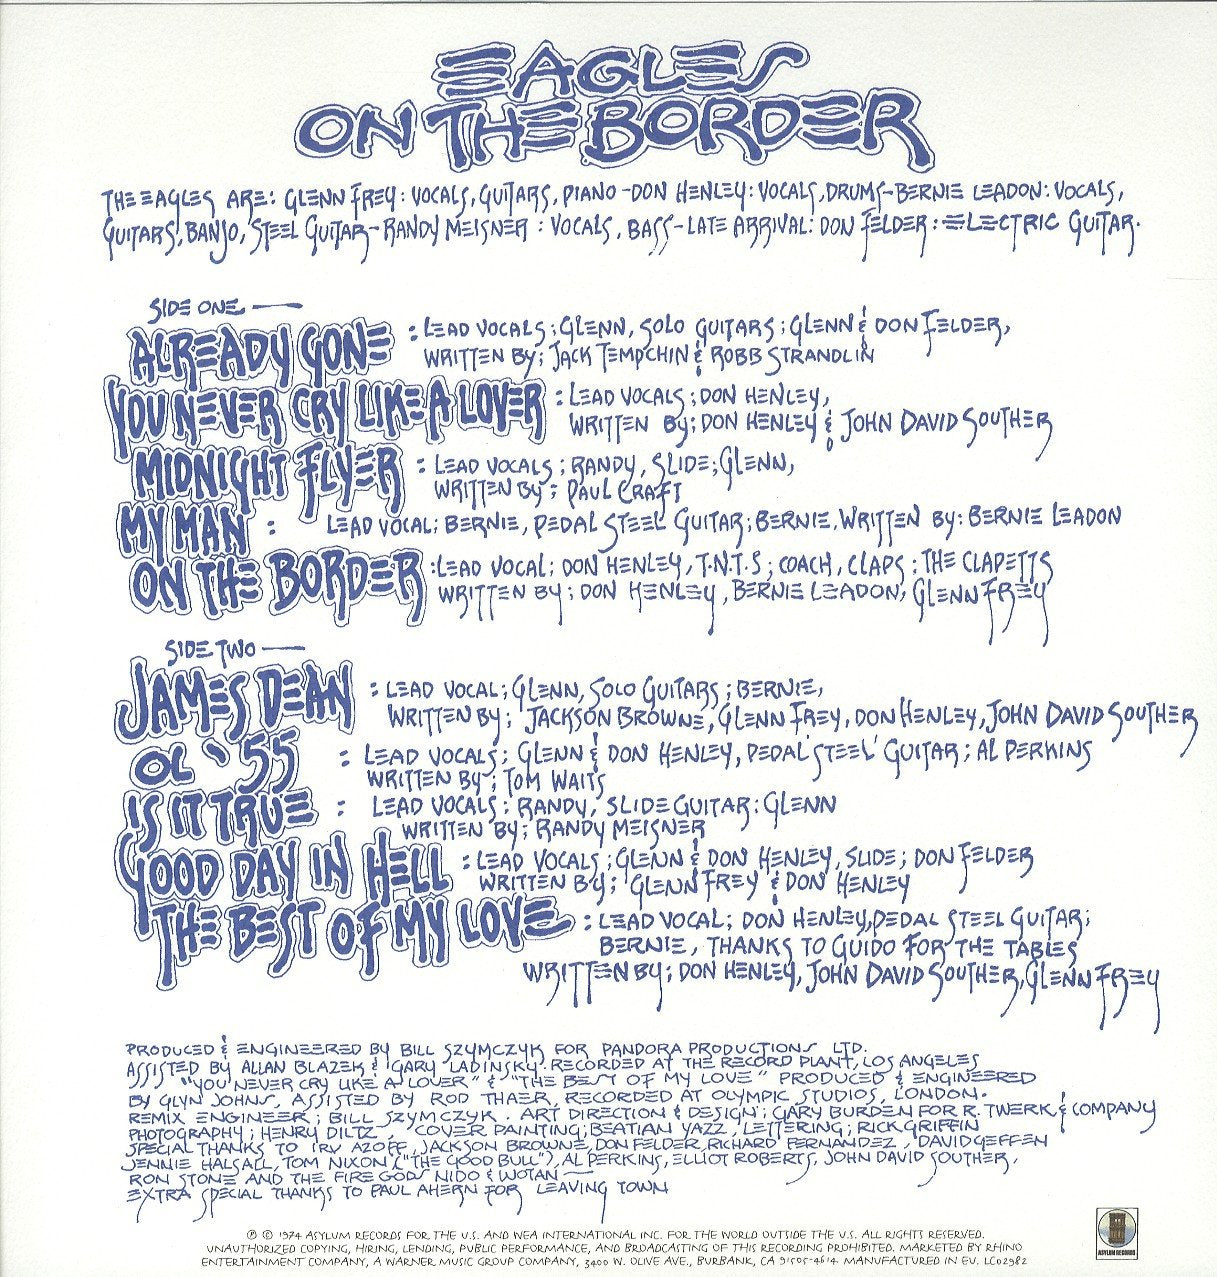 EAGLES
ON THE BORDER
THE EAGLES ARE: GLENN FREY: VOCALS, GUITARS, PIANO - DON HENLEY: VOCALS, DRUMS - BERNIE LEADON: VOCALS,
GUITARS, BANJO, STEEL GUITAR - RANDY MEISNER : VOCALS, BASS - LATE ARRIVAL: DON FELDER: ELECTRIC GUITAR.
SIDE ONE —
ALREADY GONE : LEAD VOCALS; GLENN, SOLO GUITARS; GLENN & DON FELDER,
WRITTEN BY; JACK TEMPCHIN & ROBB STRANDLIN
YOU NEVER CRY LIKE A LOVER : LEAD VOCALS; DON HENLEY,
WRITTEN BY; DON HENLEY & JOHN DAVID SOUTHER
MIDNIGHT FLYER : LEAD VOCALS; RANDY, SLIDE; GLENN,
WRITTEN BY; PAUL CRAFT
MY MAN : LEAD VOCAL; BERNIE, PEDAL STEEL GUITAR; BERNIE, WRITTEN BY: BERNIE LEADON
ON THE BORDER : LEAD VOCAL; DON HENLEY, T.N.T.S; COACH, CLAPS: THE CLAPETTS
WRITTEN BY; DON HENLEY, BERNIE LEADON, GLENN FREY
SIDE TWO —
JAMES DEAN : LEAD VOCAL; GLENN, SOLO GUITARS; BERNIE,
WRITTEN BY; JACKSON BROWNE, GLENN FREY, DON HENLEY, JOHN DAVID SOUTHER
OL '55 : LEAD VOCALS; GLENN & DON HENLEY, PEDAL STEEL GUITAR; AL PERKINS
WRITTEN BY; TOM WAITS
IS IT TRUE : LEAD VOCALS; RANDY, SLIDE GUITAR: GLENN
WRITTEN BY; RANDY MEISNER
GOOD DAY IN HELL : LEAD VOCALS; GLENN & DON HENLEY, SLIDE; DON FELDER
WRITTEN BY; GLENN FREY & DON HENLEY
THE BEST OF MY LOVE : LEAD VOCAL; DON HENLEY, PEDAL STEEL GUITAR;
BERNIE, THANKS TO GUIDO FOR THE TABLES
WRITTEN BY; DON HENLEY, JOHN DAVID SOUTHER, GLENN FREY
PRODUCED & ENGINEERED BY BILL SZYMCZYK FOR PANDORA PRODUCTIONS LTD.
ASSISTED BY ALLAN BLAZEK & GARY LADINSKY. RECORDED AT THE RECORD PLANT, LOS ANGELES
"YOU NEVER CRY LIKE A LOVER" & "THE BEST OF MY LOVE" PRODUCED & ENGINEERED
BY GLYN JOHNS, ASSISTED BY ROD THAER, RECORDED AT OLYMPIC STUDIOS, LONDON.
REMIX ENGINEER; BILL SZYMCZYK. ART DIRECTION & DESIGN; GARY BURDEN FOR R. TWERK & COMPANY
PHOTOGRAPHY; HENRY DILTZ, COVER PAINTING; BEATIAN YAZZ, LETTERING; RICK GRIFFIN
SPECIAL THANKS TO IRV AZOFF, JACKSON BROWNE, DON FELDER, RICHARD FERNANDEZ, DAVID GEFFEN
JENNIE HALSALL, TOM NIXON ("THE GOOD BULL"), AL PERKINS, ELLIOT ROBERTS, JOHN DAVID SOUTHER,
RON STONE AND THE FIRE GODS NIDO & WOTAN —
EXTRA SPECIAL THANKS TO PAUL AHERN FOR LEAVING TOWN
℗ © 1974 ASYLUM RECORDS FOR THE U.S. AND WEA INTERNATIONAL INC. FOR THE WORLD OUTSIDE THE U.S. ALL RIGHTS RESERVED.
UNAUTHORIZED COPYING, HIRING, LENDING, PUBLIC PERFORMANCE, AND BROADCASTING OF THIS RECORDING PROHIBITED. MARKETED BY RHINO
ENTERTAINMENT COMPANY, A WARNER MUSIC GROUP COMPANY, 3400 W. OLIVE AVE., BURBANK, CA 91505-4614 MANUFACTURED IN EU. LC02982
ASYLUM RECORDS